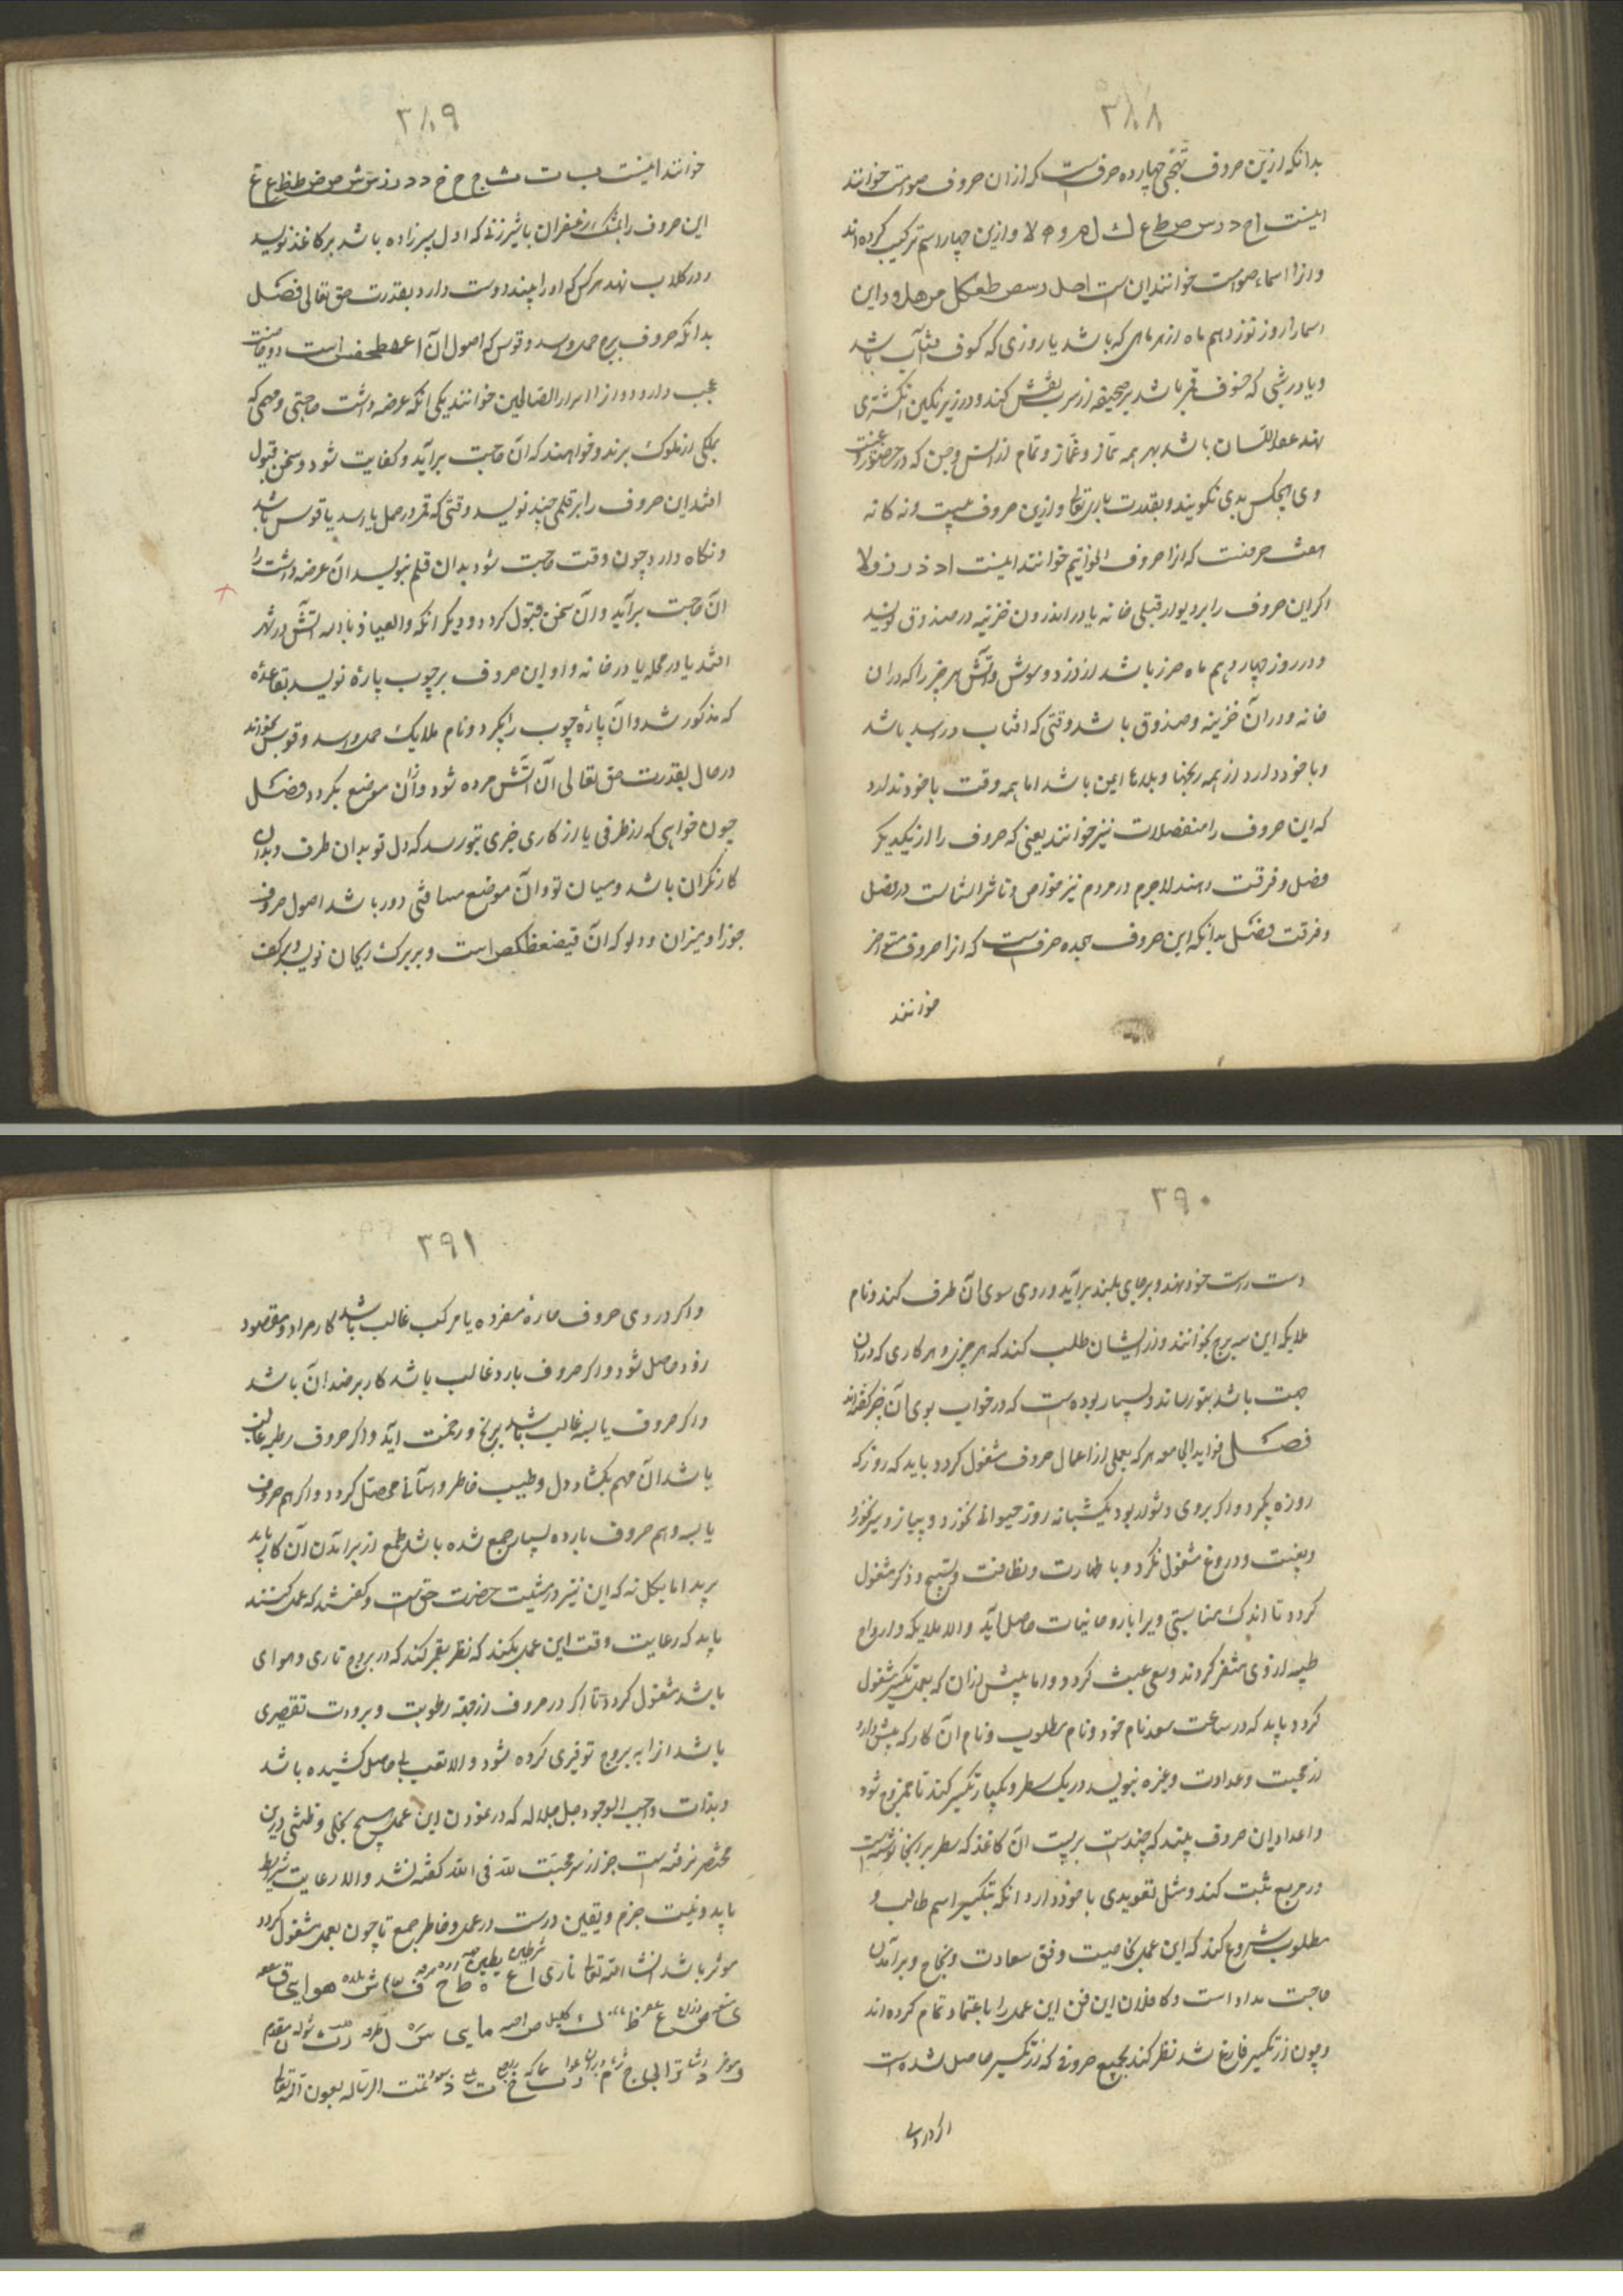 ۳۸۸
بدانکه ازین حروف تهجی چهارده حرفست که ازان حروف صوامت خوانند
اینست ا ح د ر س ص ط ع ک ل م و ه لا و ازین چهار اسم ترکیب کرده اند
و ازا اسماء صوامت خوانند این است احل درسص طعکل و این
اسما را روز نوزدهم ماه از هر ماهی که باشد یا روزی که کسوف آفتاب باشد
و یا در شبی که خسوف قمر باشد بر صحیفه ارزیز نقش کند و در زیر نکین انکشتری
نهد عقد اللسان باشد بهر همه نماز و غماز و تمام از انس و جن که در حضور و غیبت
وی هیچکس بدی نکویند و بقدرت باری تعالی و ازین حروف بیست و نه کانه
هفت حرفست که ازا حروف خواتیم خوانند اینست ا د ذ ر ز و لا
اکر این حروف را بر دیوار قبلی خانه یا در اندرون خزینه در صندوق نویسد
و در روز چهاردهم ماه حرز باشد از دزد و سوزش و آتش هر چیز را که دران
خانه و دران خزینه و صندوق باشد وقتی که افتاب در اسد باشد
و با خود دارد از همه رنجها و بلاها ایمن باشد اما همه وقت با خود ندارد
که این حروف را منفصلات نیز خوانند یعنی که حروف را از یکدیکر
فصل و فرقت دهند لاجرم در مردم نیز خواص و تاثیر ایشانست در فصل
و فرقت فصل بدانکه این حروف هجده حرفست که ازا حروف متواخر
خوانند
۳۸۹
خوانند اینست ب ت ث ج ح خ د ذ ر ز س ش ص ض ط ظ ع غ
این حروف را بمشک و زعفران با شیر زنی که اول پسر زاده باشد بر کاغذ نویسد
و در کلاب نهد هر کس که او را بیند دوست دارد بقدرت حق تعالی فصل
بدانکه حروف بروج حمل و اسد و قوس که اصول آن اعهطحفش است دو خاصیت
عجب دارد و ازا اسرار الصالحین خوانند یکی آنکه عرضه داشت حاجتی و مهمی که
بملکی از ملوک برند و خواهند که آن حاجت برآید و کفایت شود و سخن قبول
افتد این حروف را بر قلمی چند نویسد وقتی که قمر در حمل یا اسد یا قوس باشد
و نکاه دارد چون وقت حاجت شود بدان قلم بنویسد آن عرضه داشت را
آن حاجت برآید و آن سخن قبول کردد و دیکر آنکه والعیاذ بالله آتش در شهر
افتد یا در محله یا در خانه و او این حروف بر چوب پارهٔ نویسد بقاعدهٔ
که مذکور شد و آن پارهٔ چوب را بکیرد و نام ملایک حمل و اسد و قوس بخواند
در حال بقدرت حق تعالی آن آتش مرده شود و ازان موضع بکردد فصل
چون خواهی که از طرفی یا از کاری خبری بتو رسد که دل تو بدان طرف و بدان
کار نکران باشد و میان تو و آن موضع مسافتی دور باشد اصول حروف
جوزا و میزان و دلو که آن قیضعظکص است و بر برک ریحان نویسد و بر کف
۳۹۰
دست راست خود نهد و بر جای بلند برآید و روی سوی آن طرف کند و نام
ملایکه این سه برج بخوانند و از ایشان طلب کند که هر چیزی و هر کاری که دران
جهت باشد بتو رساند و بسیار بوده است که در خواب بوی آن خبر کفته اند
فصل فواید الجامعه هر که بعملی از اعمال حروف مشغول کردد باید که روز که
روزه بکیرد و اکر بر وی دشوار بود یکشبانه روز حیوانی نخورد و پیاز و سیر نخورد
و بغیبت و دروغ مشغول نکردد و با طهارت و نظافت و تسبیح و ذکر مشغول
کردد تا اندک مناسبتی ویرا با روحانیات حاصل آید والا ملایکه و ارواح
طیبه از وی متنفر کردند و سعی عبث کردد و اما پیش ازان که بعمل تکسیر مشغول
کردد باید که در ساعت سعد نام خود و نام مطلوب و نام آن کار که پیش دارد
از محبت و عداوت و غیره بنویسد در یک سطر و یکبار تکسیر کند تا ممزوج شود
و اعداد این حروف ببیند که چندست بر پشت آن کاغذ که سطر بر آنجا نوشته است
در مربع ثبت کند و مثل تعویذی با خود دارد آنکه بتکسیر اسم طالب و
مطلوب شروع کند که این عمل بخاصیت وفق سعادت و نجاح و برآمدن
حاجت مداد است و کاملان این فن این عمل را باعتماد تمام کرده اند
و چون از تکسیر فارغ شد نظر کند بجمیع حروفی که از تکسیر حاصل شده است
اکر در وی
۳۹۱
و اکر در وی حروف حارهٔ مفرده یا مرکب غالب باشد کار مراد و مقصود
زود حاصل شود و اکر حروف بارد غالب باشد کار بر ضد آن باشد
و اکر حروف یابسه غالب باشد برنج و زحمت آید و اکر حروف رطبه غالب
باشد آن مهم بکشاد دل و طیب خاطر و آسانی محصل کردد و اکر هم حروف
یابسه و هم حروف بارده بسیار جمع شده باشد طمع از برآمدن آن کار باید
برید اما بکل نه که این نیز در مشیت حضرت حق است و کفته شد که عمل کنند
باید که رعایت وقت این عمل بکند که نظر بقمر کند که در بروج ناری و هوای
باشد مشغول کردد تا اکر در حروف از جهة رطوبت و برودت تقصیری
باشد ازا به بروج توفیری کرده شود والا تعب بی حاصل کشیده باشد
و بذات واجب الوجود جل جلاله که در نمودن این عمل هیچ بخلی و ظنتی درین
مختصر نرفته است جز از سر محبت لله فی الله کفته نشد والا رعایت شرایط
باید و نیت جزم و یقین درست در عمل و خاطر جمع تا چون بعمل مشغول کردد
موثر باشد انشاء الله تعالی ناری ا ع ه ط ح ف ش هوایی ق
ی ض ع ظ ک ص مایی س ل ر ث
تمت الرساله بعون الله تعالی